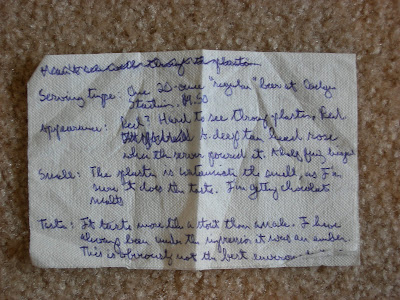 Hard to see color through the plastic
Serving type: One 20-ounce "regular" beer at Dodger
Stadium. $9.50
Appearance: Red? Hard to see through plastic. Red
a deep tan head rose
when the server poured it.
Smell: The plastic is the smell, as I'm
sure it does the taste. I'm getting chocolate
malts
Taste: It tastes more like a stout than an ale. I have
always been under the impression it was an amber.
This is obviously not the best